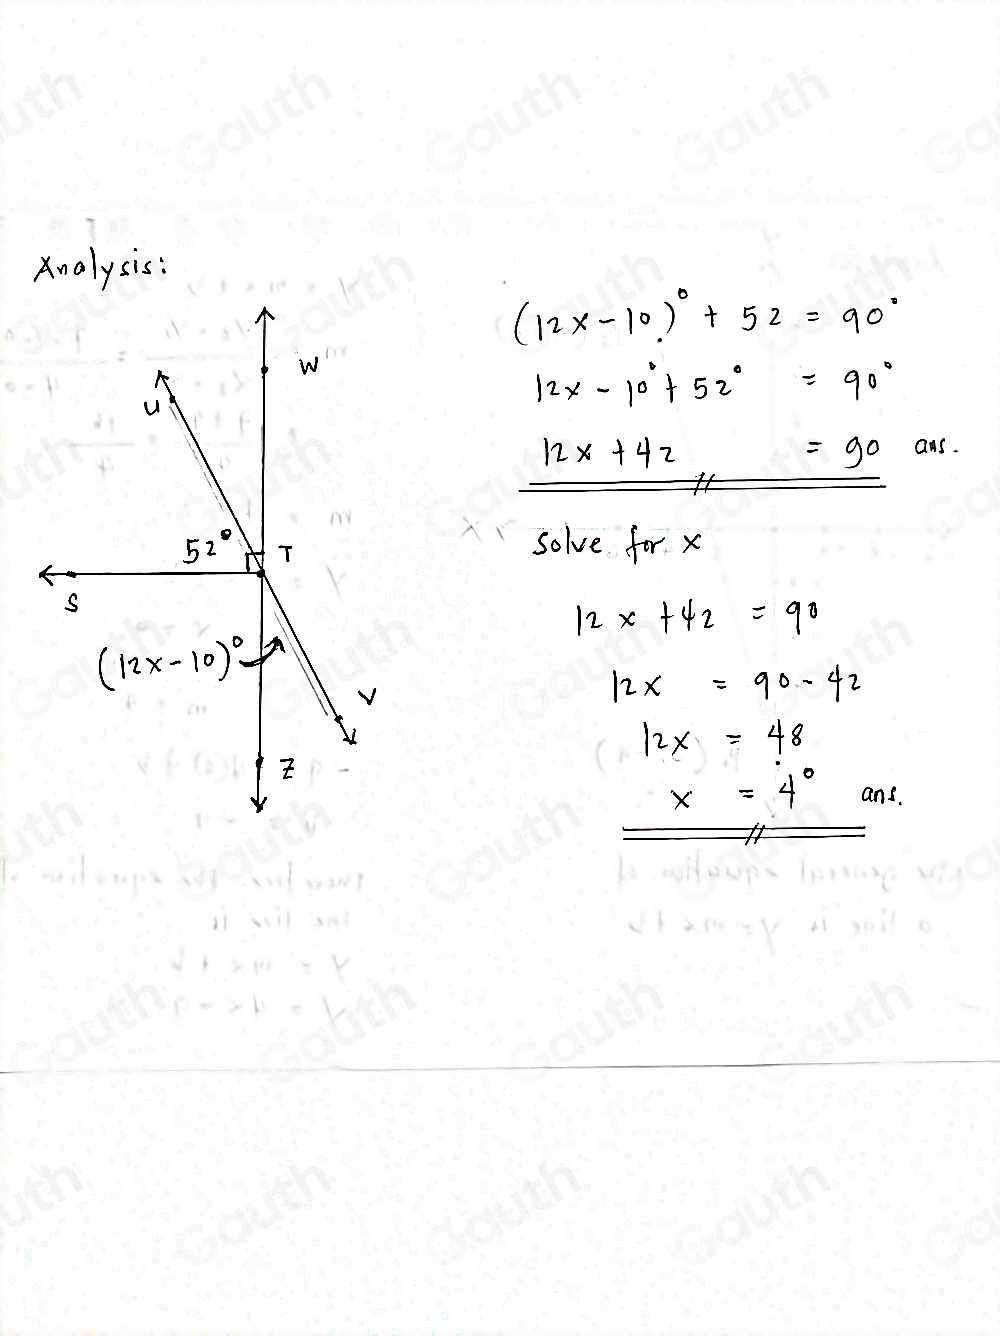 Analysis:
W
U
52°
T
S
(12x-10)°
V
Z
(12x-10)° + 52 = 90°
12x - 10° + 52° = 90°
12x + 42 = 90 ans.
Solve for x
12x + 42 = 90
12x = 90 - 42
12x = 48
x = 4° ans.
Gauth